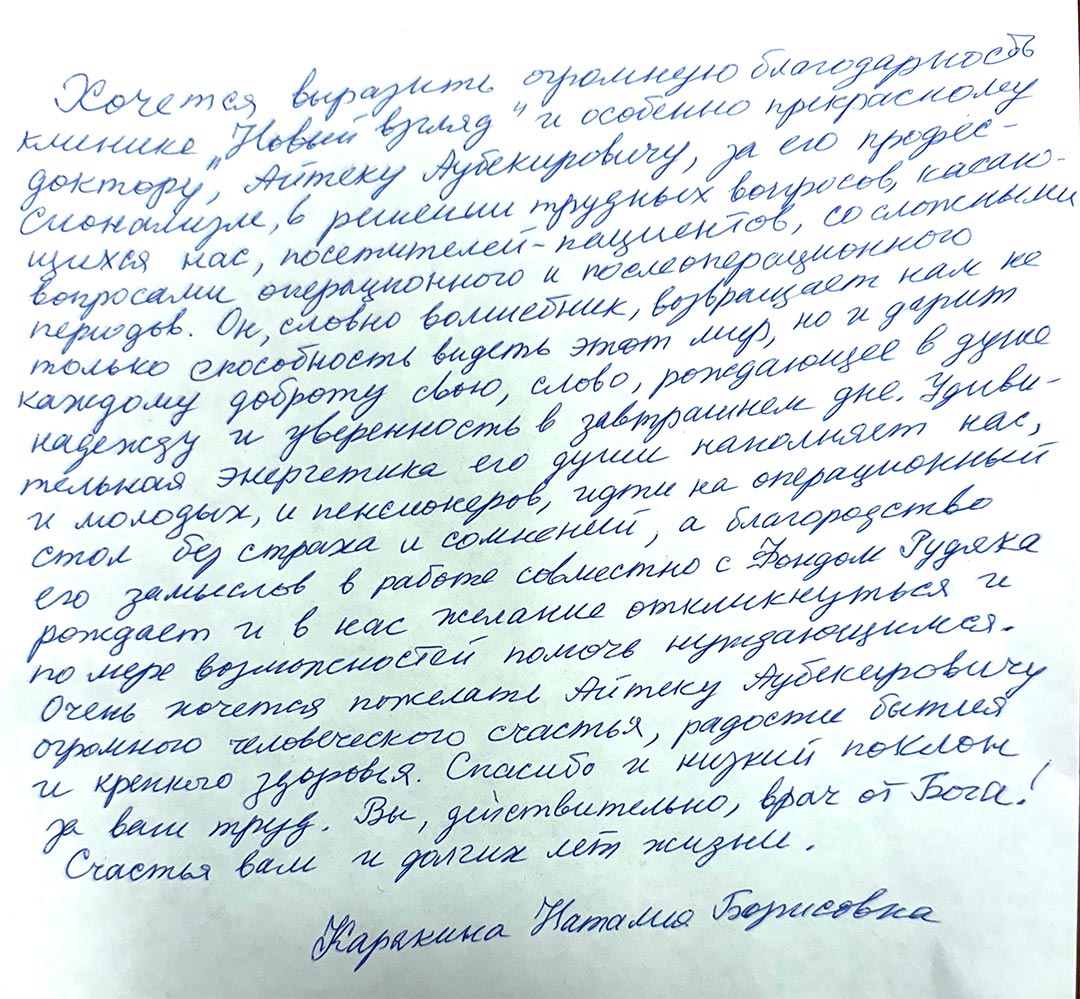 Хочется выразить огромную благодарность
клинике „Новый взгляд" и особенно прекрасному
доктору, Айтеку Аубекировичу, за его профес-
сионализм, в решении трудных вопросов, касаю-
щихся нас, посетителей-пациентов, со сложными
вопросами операционного и послеоперационного
периодов. Он, словно волшебник, возвращает нам не
только способность видеть этот мир, но и дарит
каждому доброту свою, слово, рождающее в душе
надежду и уверенность в завтрашнем дне. Удиви-
тельная энергетика его души наполняет нас,
и молодых, и пенсионеров, идти на операционный
стол без страха и сомнений, а благородство
его замыслов в работе совместно с Фондом Рудяка
рождает и в нас желание откликнуться и
по мере возможностей помочь нуждающимся.
Очень хочется пожелать Айтеку Аубекировичу
огромного человеческого счастья, радости бытия
и крепкого здоровья. Спасибо и низкий поклон
за ваш труд. Вы, действительно, врач от Бога!
Счастья вам и долгих лет жизни.
Карякина Наталия Борисовна